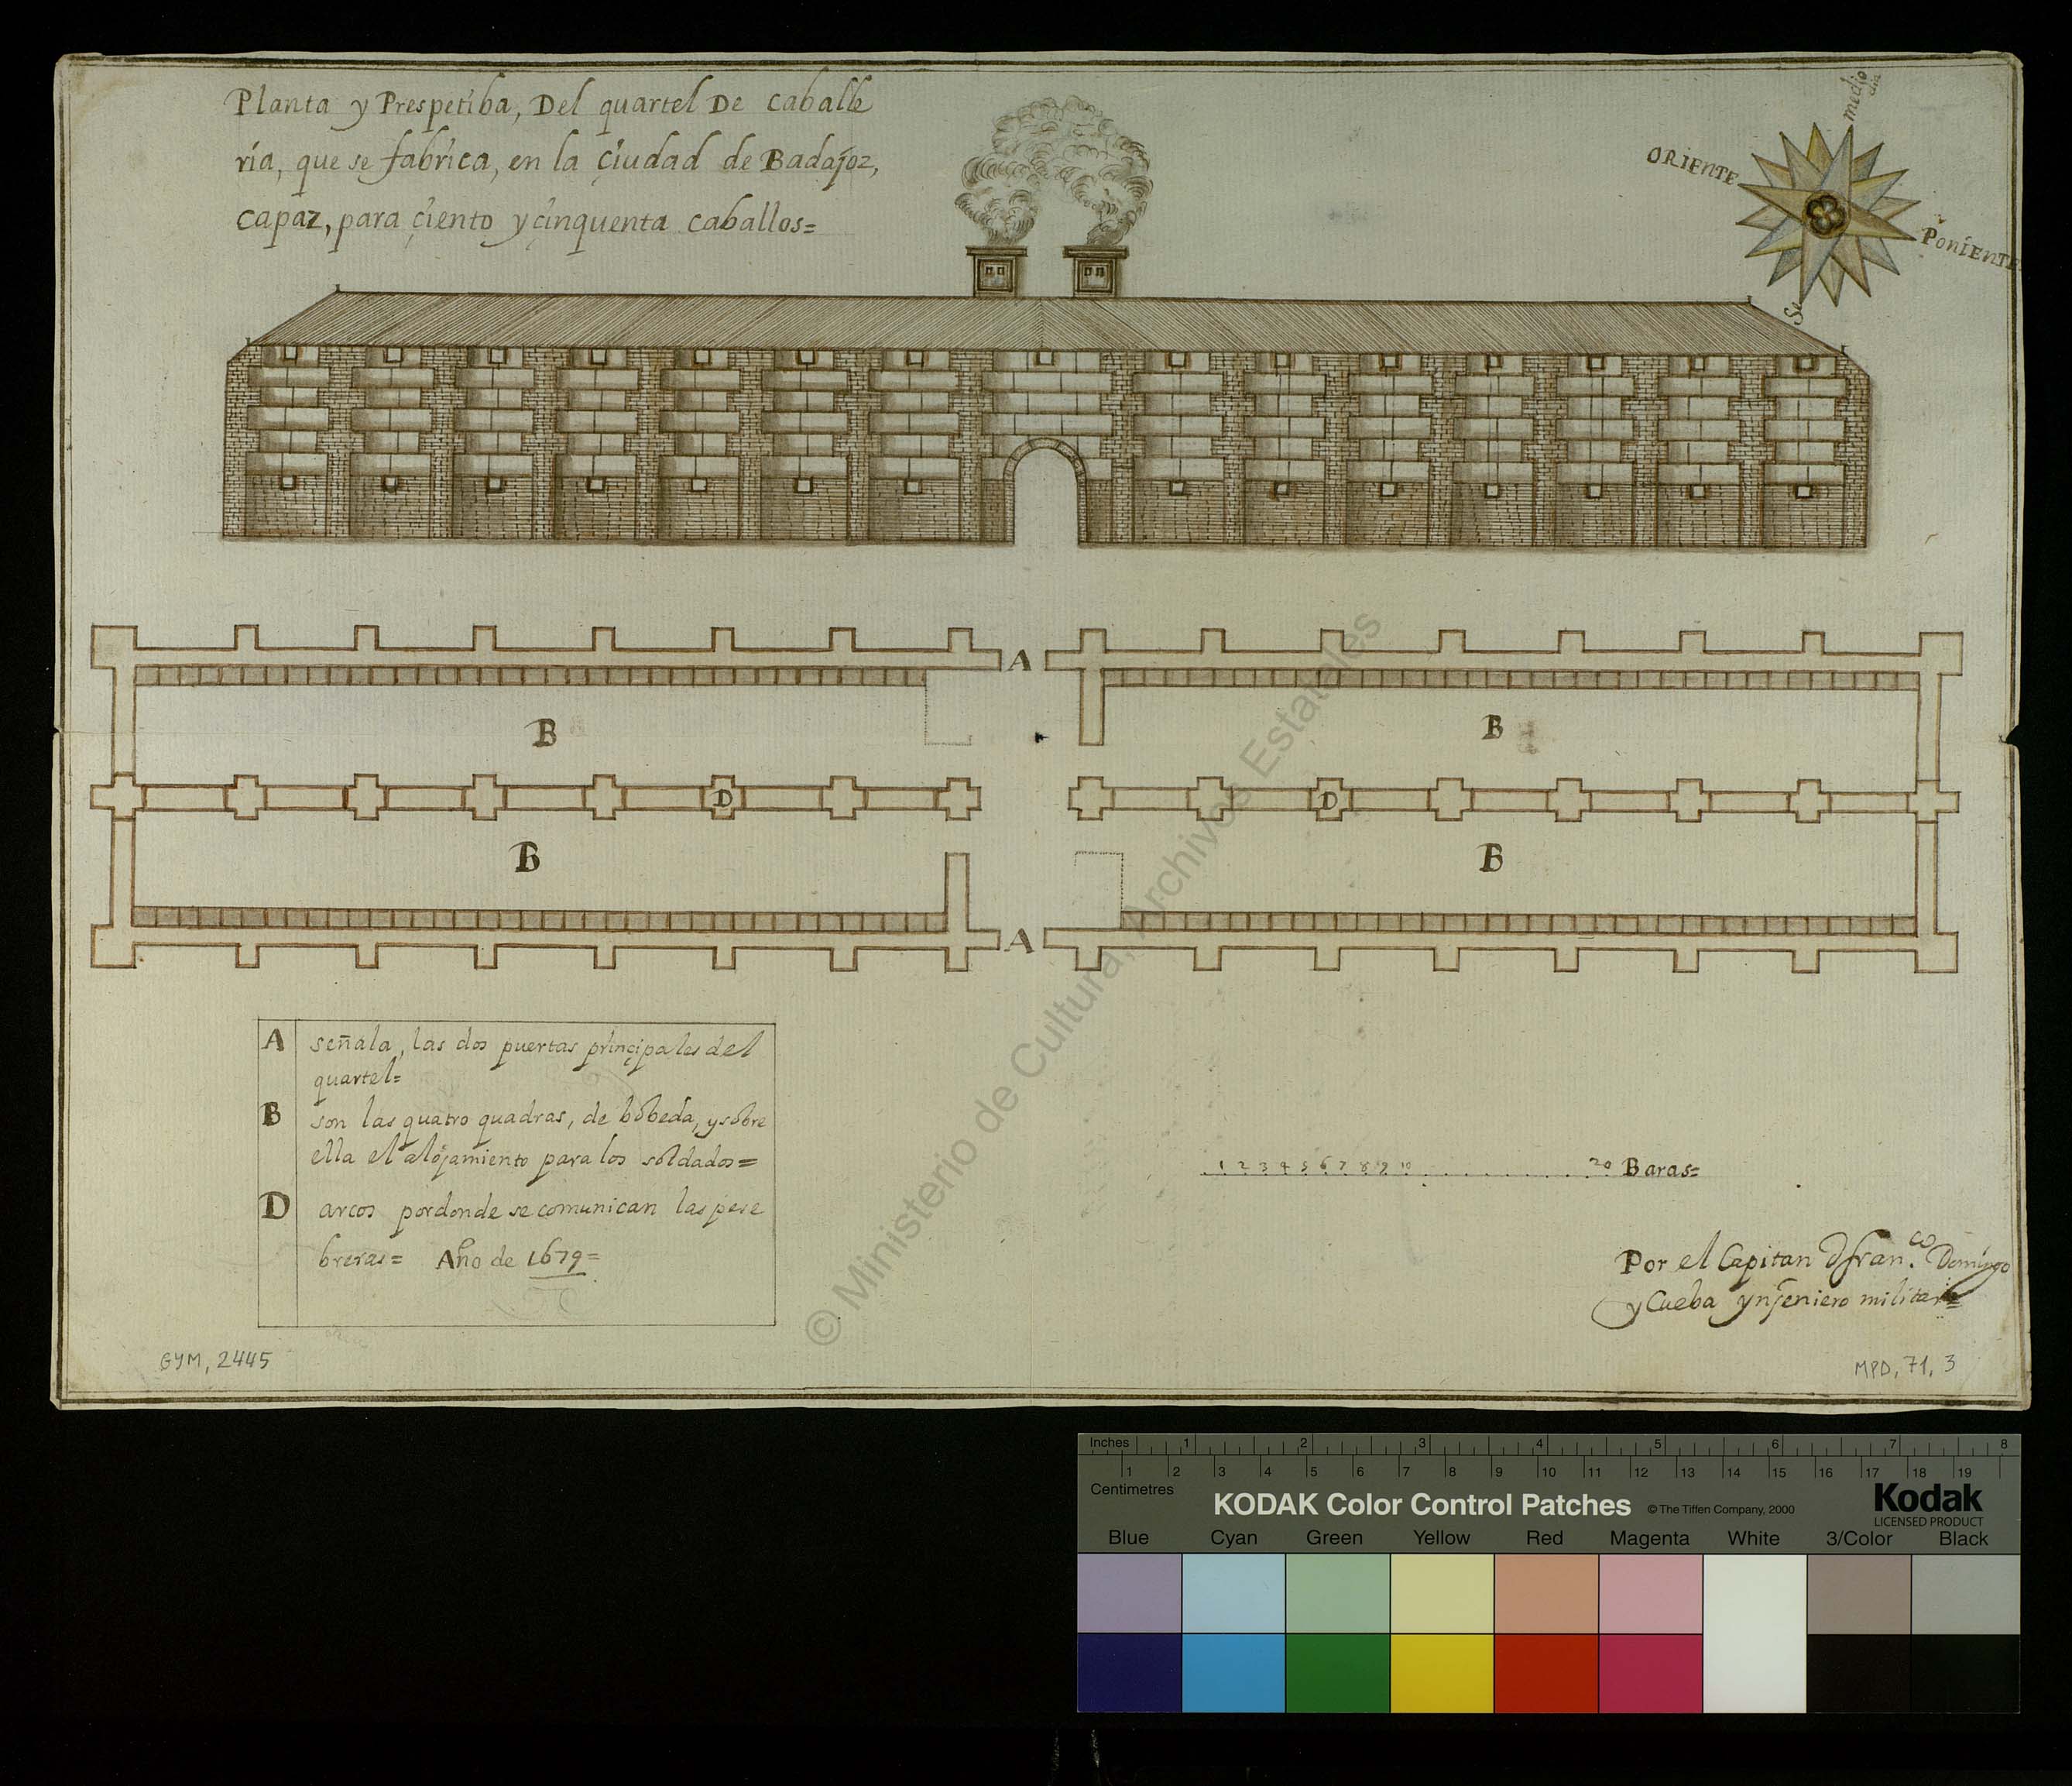 Planta y Prespetiba, Del quartel De caballe
ria, que se fabrica, en la çiudad de Badajoz,
capaz, para çiento y çinquenta caballos=
medio
dia
ORIENTE
PonIENTE
Se
A
B
B
D
D
B
B
A
A señala, las dos puertas prinçipales del
quartel=
B son las quatro quadras, de bobeda, y sobre
ella el alojamiento para los soldados=
D arcos por donde se comunican las pese
breras= Año de 1679=
1 2 3 4 5 6 7 8 9 10 20 Baras=
Por el Capitan D fran.co Domingo
y Cueba ynjeniero militar=
GYM, 2445
MPD, 71, 3
© Ministerio de Cultura, Archivos Estatales
Inches 1 2 3 4 5 6 7 8
1 2 3 4 5 6 7 8 9 10 11 12 13 14 15 16 17 18 19
Centimetres
KODAK Color Control Patches © The Tiffen Company, 2000 Kodak
LICENSED PRODUCT
Blue Cyan Green Yellow Red Magenta White 3/Color Black